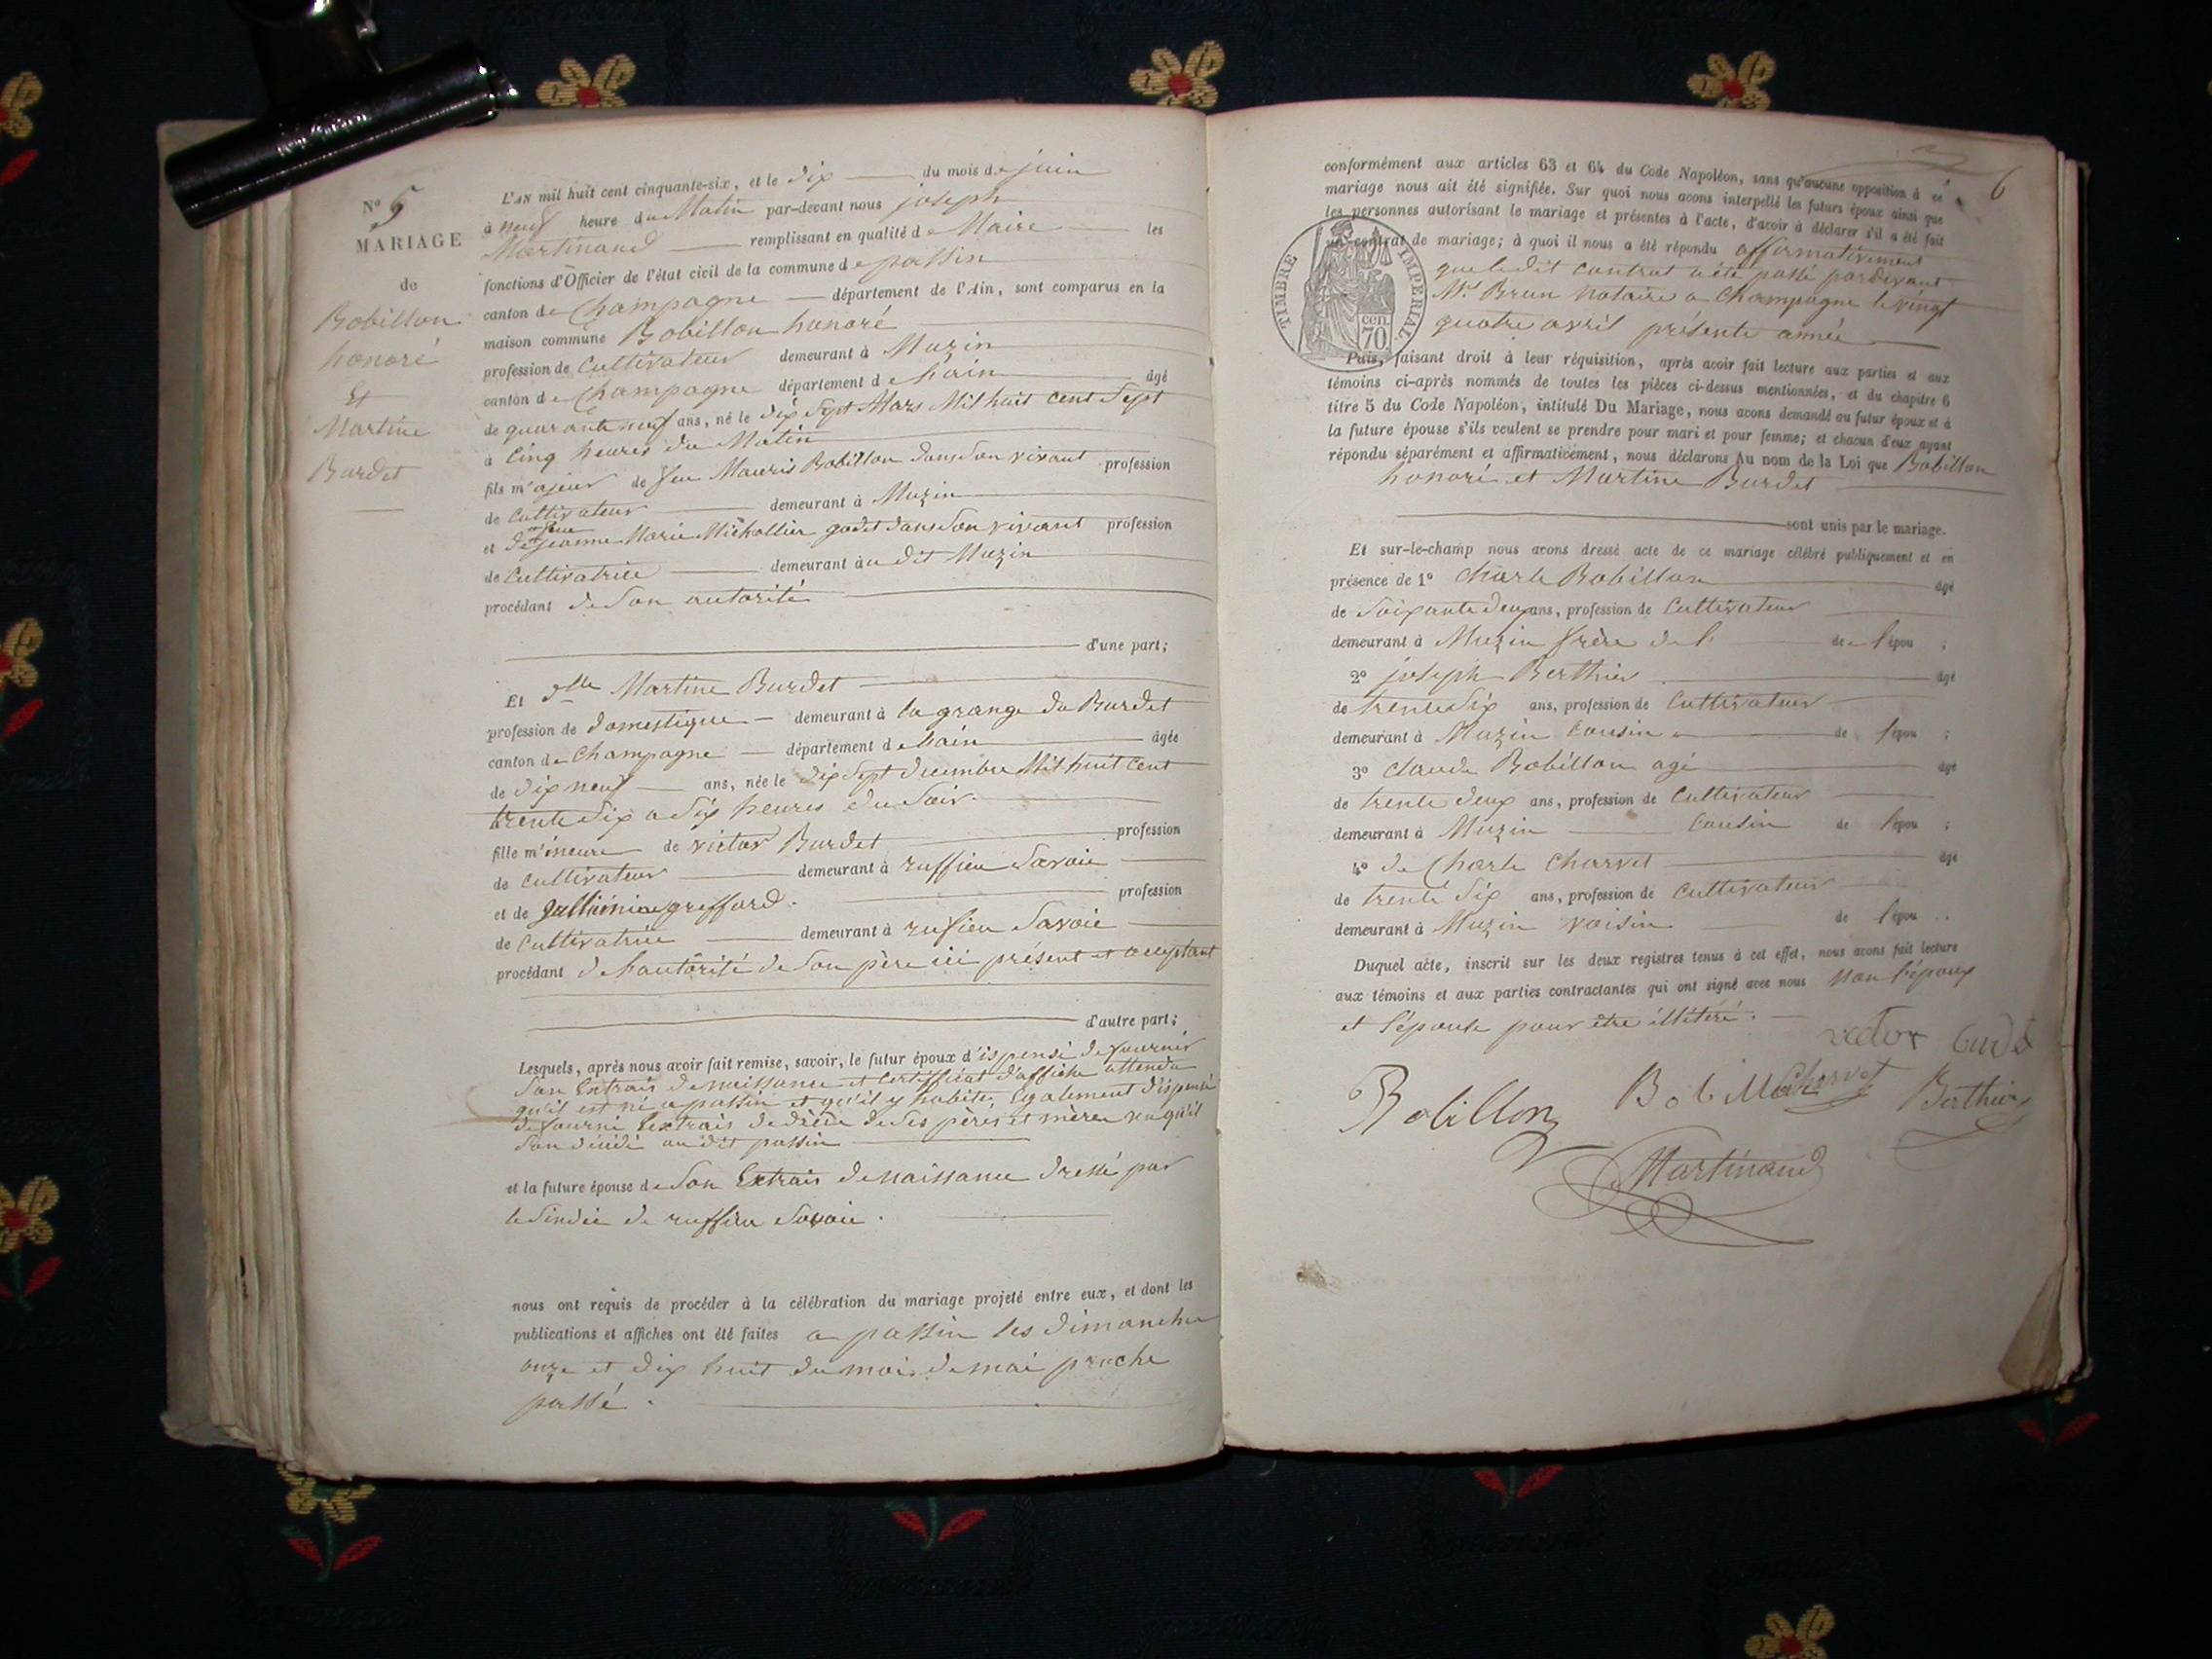 N° 5
MARIAGE
de
Bobillon
honoré
Et
Martine
Burdet
L'AN mil huit cent cinquante-six, et le dix du mois de juin
à neuf heure du Matin par-devant nous joseph
Martinand remplissant en qualité de Maire les
fonctions d'Officier de l'état civil de la commune de passin
canton de Champagne département de l'Ain, sont comparus en la
maison commune Bobillon honoré
profession de Cultivateur demeurant à Muzin
canton de Champagne département de hain âgé
de quarante neuf ans, né le dix Sept Mars Mil huit cent Sept
à Cinq heures du Matin
fils m'ajeur de feu Mauris Bobillon dans Son vivant profession
de Cultivateur demeurant à Muzin
feue
et de jeanne Marie Michollier godet dans Son vivant profession
de Cultivatrice demeurant au dit Muzin
procédant de Son autorité
d'une part;
Et dlle Martine Burdet
profession de domestique demeurant à la grange du Burdet
canton de Champagne département de hain âgée
de dix neuf ans, née le dix Sept decembre Mil huit Cent
trente Six a Six heures du Soir.
fille m'ineure de victor Burdet profession
de Cultivateur demeurant à ruffieu Savoie
et de greffard. profession
de Cultivatrice demeurant à rufieu Savoie
procédant de hautorité de Son père ici présent et aceptant
d'autre part;
Lesquels, après nous avoir fait remise, savoir, le futur époux d'ispensé de fournir
Son Extrais de naissance et Certifficat d'affiche attendu
qu'il est né a passin et qu'il y habite, Egalement d'ispensé
de fourni lextrais de décé de Ses pères et mères vu qu'il
Son décédé au dit passin
et la future épouse de Son Extrais de naissance dressé par
le Sindic de ruffieu Savoie.
nous ont requis de procéder à la célébration du mariage projeté entre eux, et dont les
publications et affiches ont été faites a passin les dimanche
onze et dix huit du mois de mai proche
passé.
6
conformément aux articles 63 et 64 du Code Napoléon, sans qu'aucune opposition à ce
mariage nous ait été signifiée. Sur quoi nous avons interpellé les futurs époux ainsi que
les personnes autorisant le mariage et présentes à l'acte, d'avoir à déclarer s'il a été fait
un contrat de mariage; à quoi il nous a été répondu affirmativement
que le dit contrat a été passé pardevant
Me Brun Notaire a Champagne le vingt
quatre avril présente année
TIMBRE IMPERIAL
70 cen.
Puis, faisant droit à leur réquisition, après avoir fait lecture aux parties et aux
témoins ci-après nommés de toutes les pièces ci-dessus mentionnées, et du chapitre 6
titre 5 du Code Napoléon, intitulé Du Mariage, nous avons demandé au futur époux et à
la future épouse s'ils veulent se prendre pour mari et pour femme; et chacun d'eux ayant
répondu séparément et affirmativement, nous déclarons Au nom de la Loi que Bobillon
honoré et Martine Burdet
sont unis par le mariage.
Et sur-le-champ nous avons dressé acte de ce mariage célébré publiquement et en
présence de 1° Charle Bobillon âgé
de Soixante deux ans, profession de Cultivateur
demeurant à Muzin frère de l' de l'épou ;
2° joseph Berthier âgé
de trente Six ans, profession de Cultivateur
demeurant à Muzin Cousin de l'épou ;
3° Claude Bobillon agé âgé
de trente deux ans, profession de Cultivateur
demeurant à Muzin Cousin de l'épou ;
4° de Charle Charvet âgé
de trente Six ans, profession de Cultivateur
demeurant à Muzin voisin de l'épou ..
Duquel acte, inscrit sur les deux registres tenus à cet effet, nous avons fait lecture
aux témoins et aux parties contractantes qui ont signé avec nous Non l'époux
et l'épouse pour être illétéré.
Bobillon Charvet Berthier
Martinand